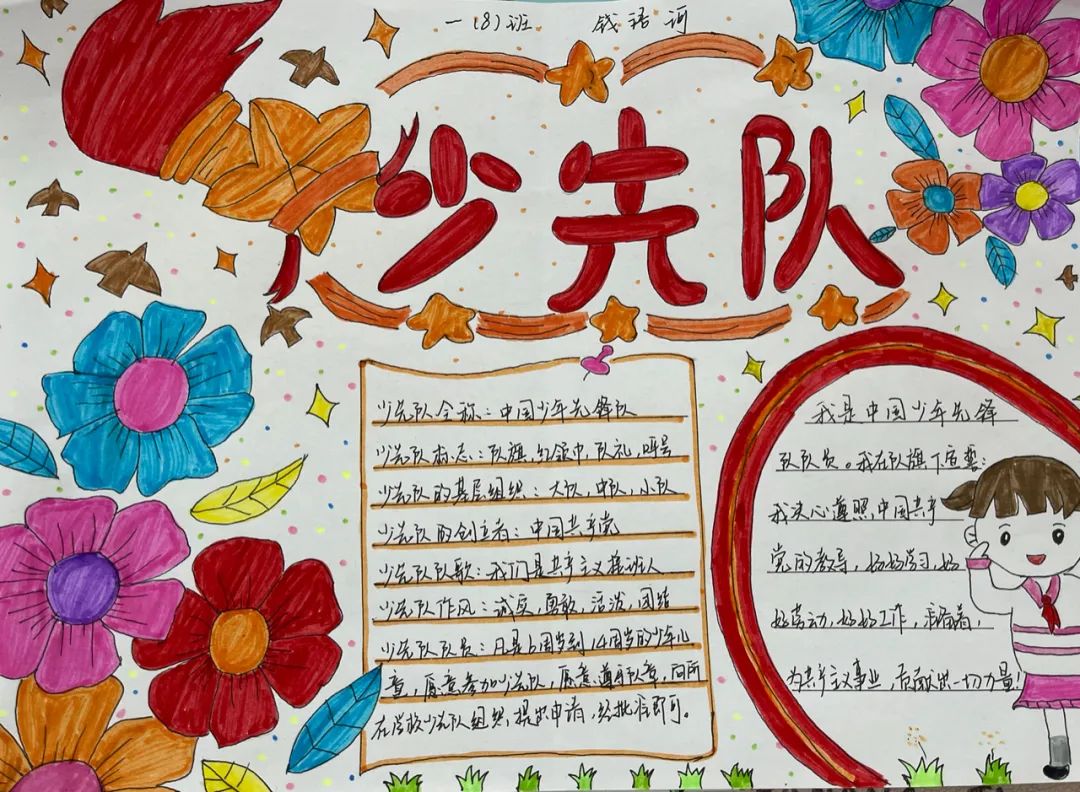 一(8)班 钱语诃
少先队
少先队全称:中国少年先锋队
少先队标志:队旗,红领巾,队礼,呼号
少先队的基层组织:大队,中队,小队
少先队的创立者:中国共产党
少先队队歌:我们是共产主义接班人
少先队作风:诚实,勇敢,活泼,团结
少先队队员:凡是6周岁到14周岁的少年儿
童,愿意参加少先队,愿意遵守队章,向所
在学校少先队组织,提出申请,经批准即可。
我是中国少年先锋
队队员。我在队旗下宣誓:
我决心遵照,中国共产
党的教导,好好学习,好
好劳动,好好工作,准备着,
为共产主义事业,贡献出一切力量!